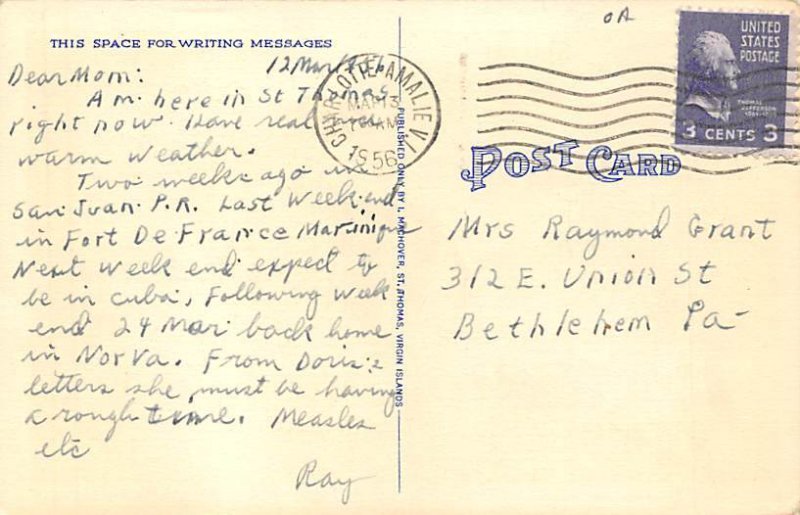 OA
THIS SPACE FOR WRITING MESSAGES
12 Mar
Dear Mom:
Am here in St Thomas
right now. Have real nice
warm weather.
Two weeks ago in
San Juan P.R. Last weekend
in Fort De France Martinique
Next week end expect to
be in Cuba, Following week
end 24 Mar back home
in Nor Va. From Doris's
letters she must be having
a rough time. Measles
etc
Ray
PUBLISHED ONLY BY I. MACHOVER, ST. THOMAS, VIRGIN ISLANDS
CHARLOTTE AMALIE V.I.
MAR 13
AM
1956
UNITED
STATES
POSTAGE
THOMAS
JEFFERSON
3 CENTS 3
POST CARD
Mrs Raymond Grant
312 E. Union St
Bethlehem Pa-